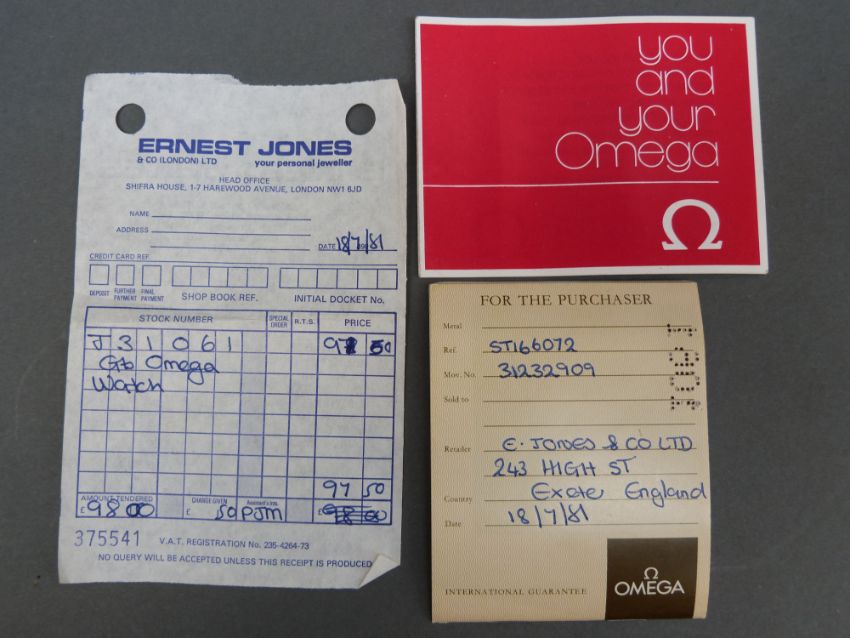 ERNEST JONES
& CO (LONDON) LTD your personal jeweller
HEAD OFFICE
SHIFRA HOUSE, 1-7 HAREWOOD AVENUE, LONDON NW1 6JD
NAME
ADDRESS
DATE 18/7/81
CREDIT CARD REF.
DEPOSIT FURTHER PAYMENT FINAL PAYMENT SHOP BOOK REF. INITIAL DOCKET No.
STOCK NUMBER SPECIAL ORDER R.T.S. PRICE
J31061 97 50
Gts Omega
Watch
97 50
AMOUNT TENDERED CHANGE GIVEN Assistant's Inits.
£98.00 £ 50p JM £
375541 V.A.T. REGISTRATION No. 235-4264-73
NO QUERY WILL BE ACCEPTED UNLESS THIS RECEIPT IS PRODUCED
you
and
your
Omega
Ω
FOR THE PURCHASER
Metal
Ref. ST166072
Mov. No. 31232909
Sold to
Retailer E. JONES & CO LTD
243 HIGH ST
Country Exeter England
Date 18/7/81
INTERNATIONAL GUARANTEE
Ω
OMEGA